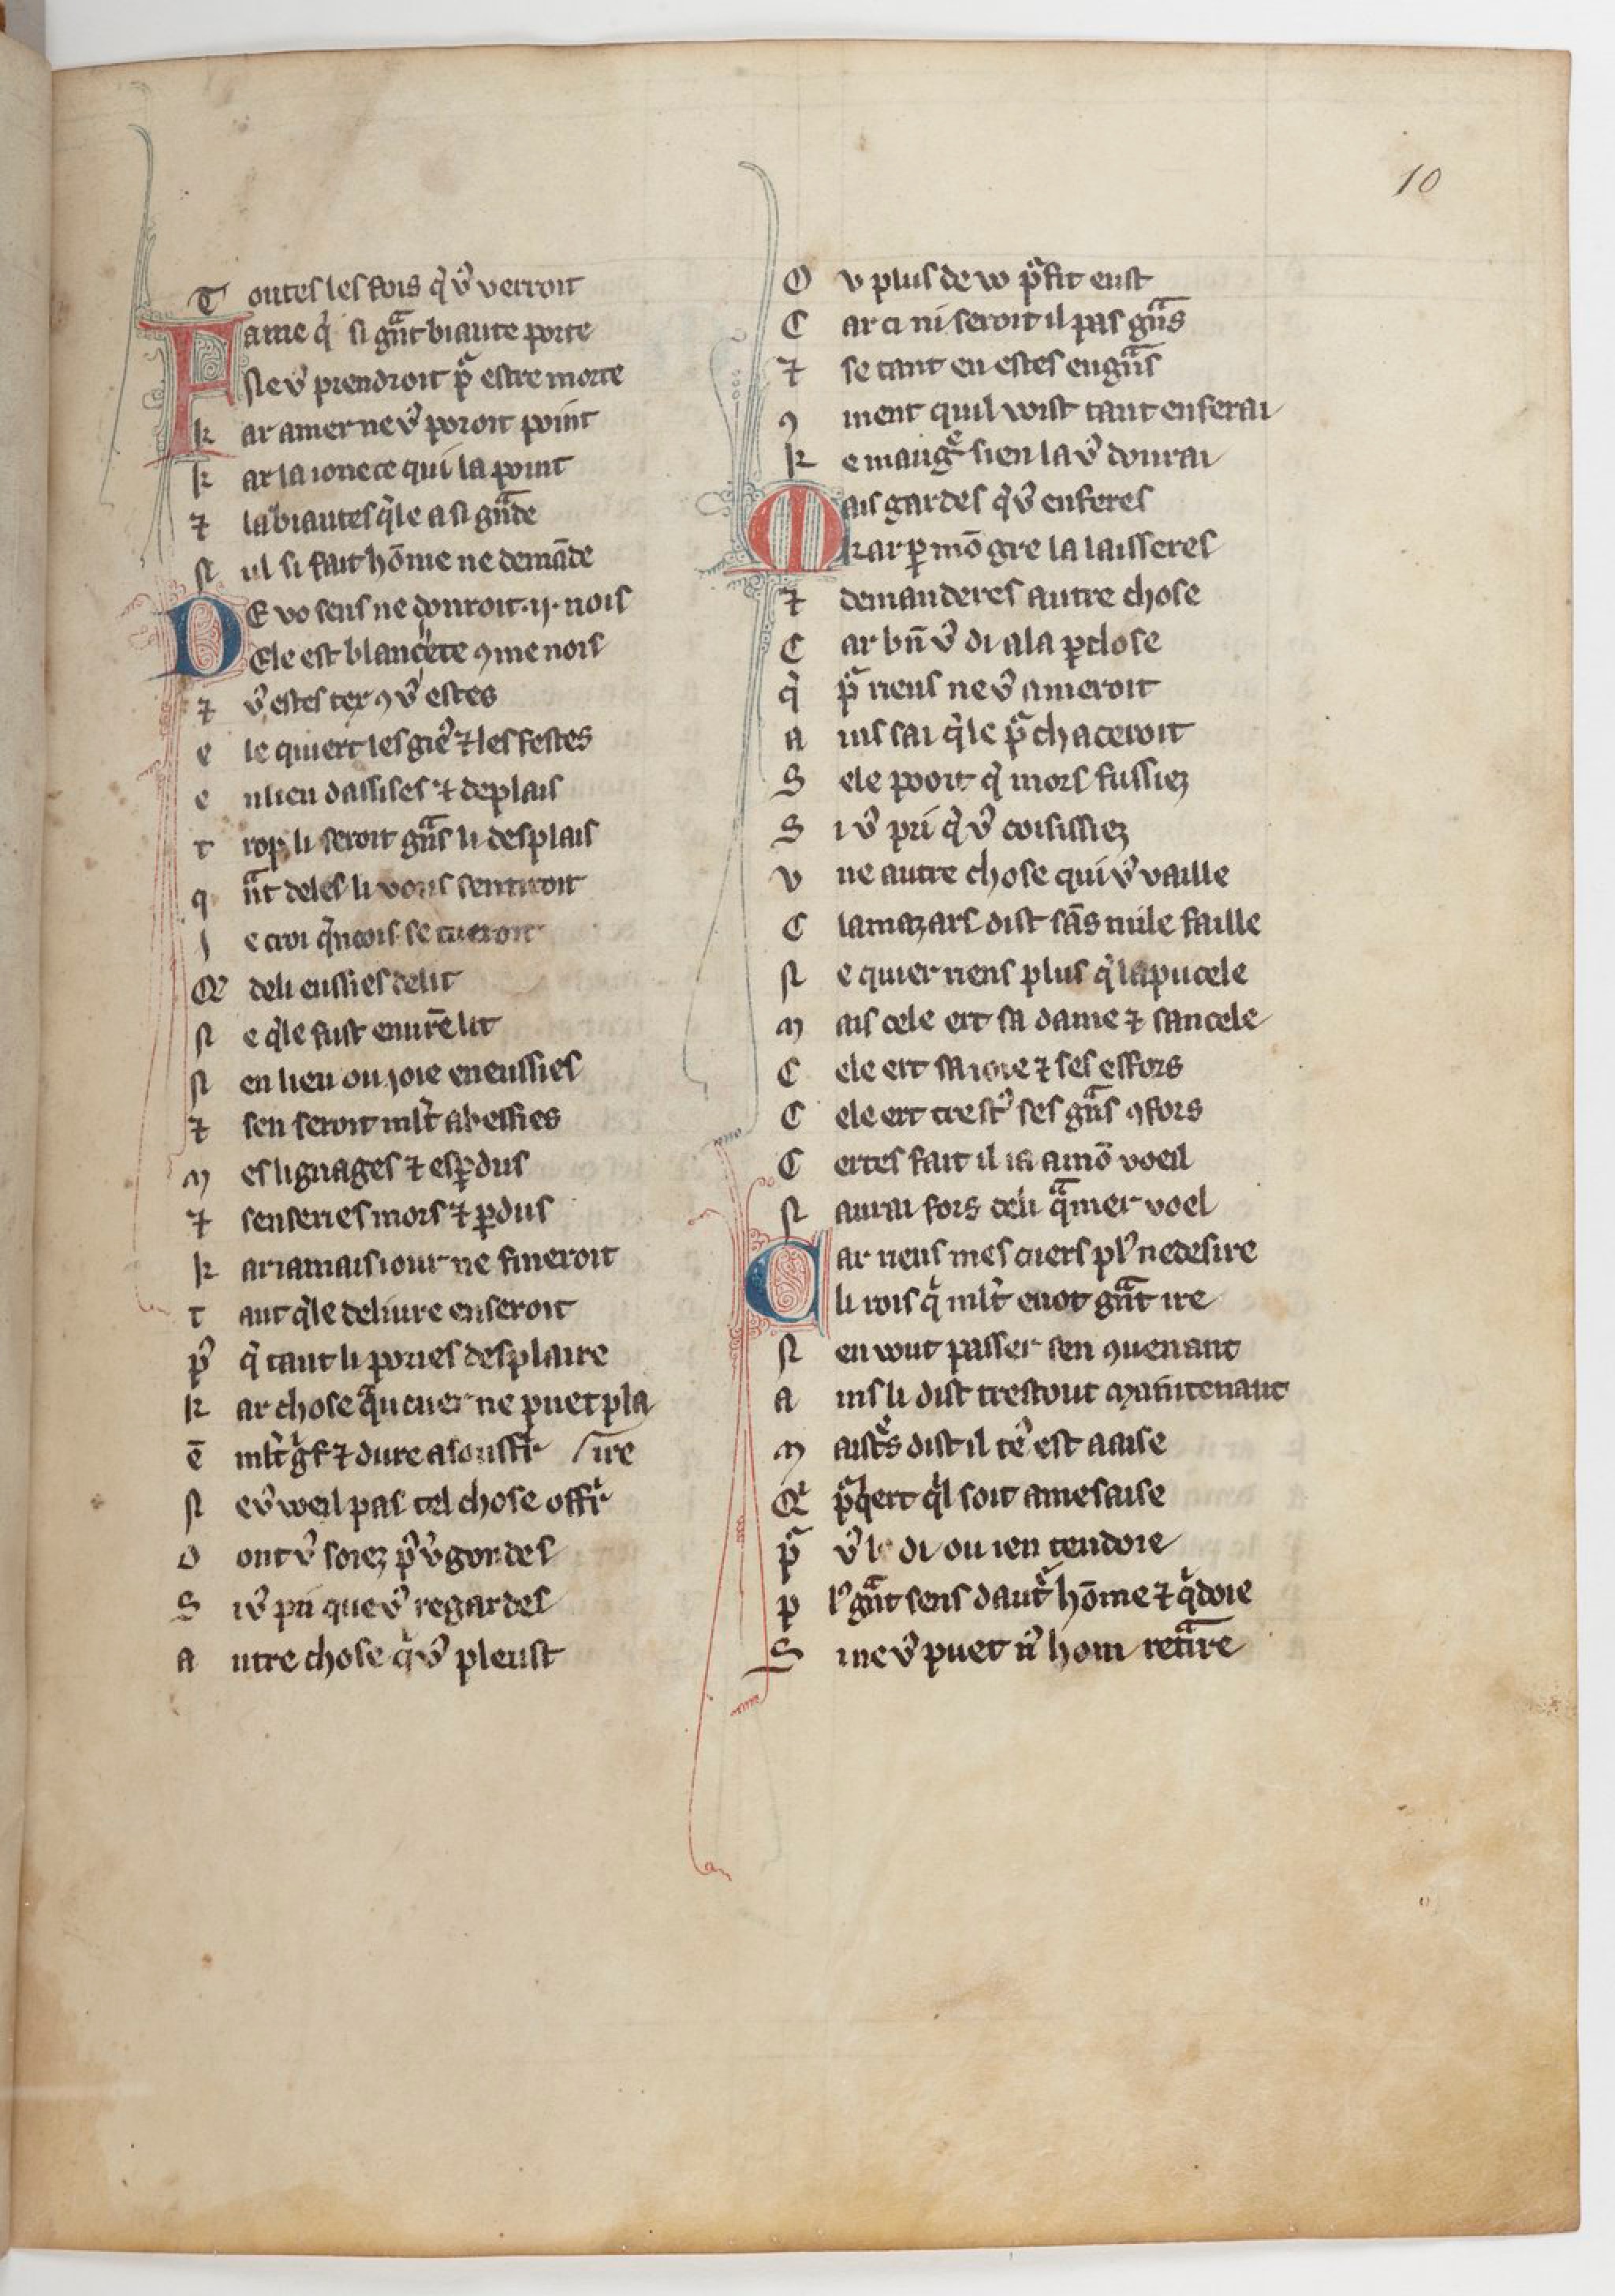 10
T outes les fois q̇ v̾ verroit
Fame q̇ si gᷓnt biaute porte
Ne v̾ prendroit pᷓ estre morte
k ar amer ne v̾ poroit point
k ar la ionece qui la point
⁊ la biautes q̇le a si gᷓnde
N ul si fait hōme ne demāde
DE vo sens ne donroit .ij. nois
Ele est blancete ꝯme nois
⁊ v̾ estes tex ꝯ v̾ estes
e le quiert les gie᷒ ⁊ les festes
e n lieu dassises ⁊ de plais
t rop li seroit gᷓns li desplais
q ᷓnt deles li vous sentiroit
J e croi q̇ncois se tueroit
Q̇ de li eussies delit
N e q̇le fust en vr̄e lit
N en lieu ou ioie en eussies
⁊ sen seroit ml̃t abessies
M es lignages ⁊ esꝑdus
⁊ sen series mors ⁊ ꝑdus
k ar iamais iour ne fineroit
t ant q̇le deliure en seroit
p᷒ q̇ tant li pories desplaire
k ar chose qᷓu cuer ne puet pla
ē ml̃t gͥf ⁊ dure a soustͥr /ire
N e v̾ weil pas tel chose offͥr
D ont v̾ soiez p᷒ v̾gondes
S i v̾ pri que v̾ regardes
A utre chose q̇ v̾ pleust
O v plus de vo pᷓfit eust
C ar ci ni seroit il pas gᷓns
⁊ se tant en estes engᷓns
ꝯ ment quil voist tant en ferai
k e maugͤ sien la v̾ donrai
Mais gardes q̇ v̾ en feres
kar ꝑ mō gre la laisseres
⁊ demanderes autre chose
C ar bn̄ v̾ di a la ꝑclose
q̇ pᷓ riens ne v̾ ameroit
A ins sai q̇le pᷓchaceroit
S ele pooit q̇ mors fussiez
S i v̾ pri q̇ v̾ coisissiez
V ne autre chose qui v̾ vaille
C lamazars dist sās nule faille
N e quier riens plus q̇ la pucele
M ais cele ert sa dame ⁊ sancele
C ele ert sa ioie ⁊ ses esfors
C ele ert trest᷒ ses gᷓns ꝯfors
C ertes fait il ia a mō voeil
N aurai fors de li qᷓmer voel
Car riens mes cuers pl᷒ ne desire
li rois q̇ ml̃t en ot gᷓnt ire
N en vout passer sen ꝯuenant
A ins li dist trestout maintenant
M aistͤs dist il te᷒ est a aise
Q̇ pᷓq̇ert q̇l soit a mesaise
pᷓ v̾ le di ou ien tendoie
P l᷒ gᷓnt sens dautͬ hōme ⁊ q̇doie
S i ne v̾ puet n᷒ hom retᷓire